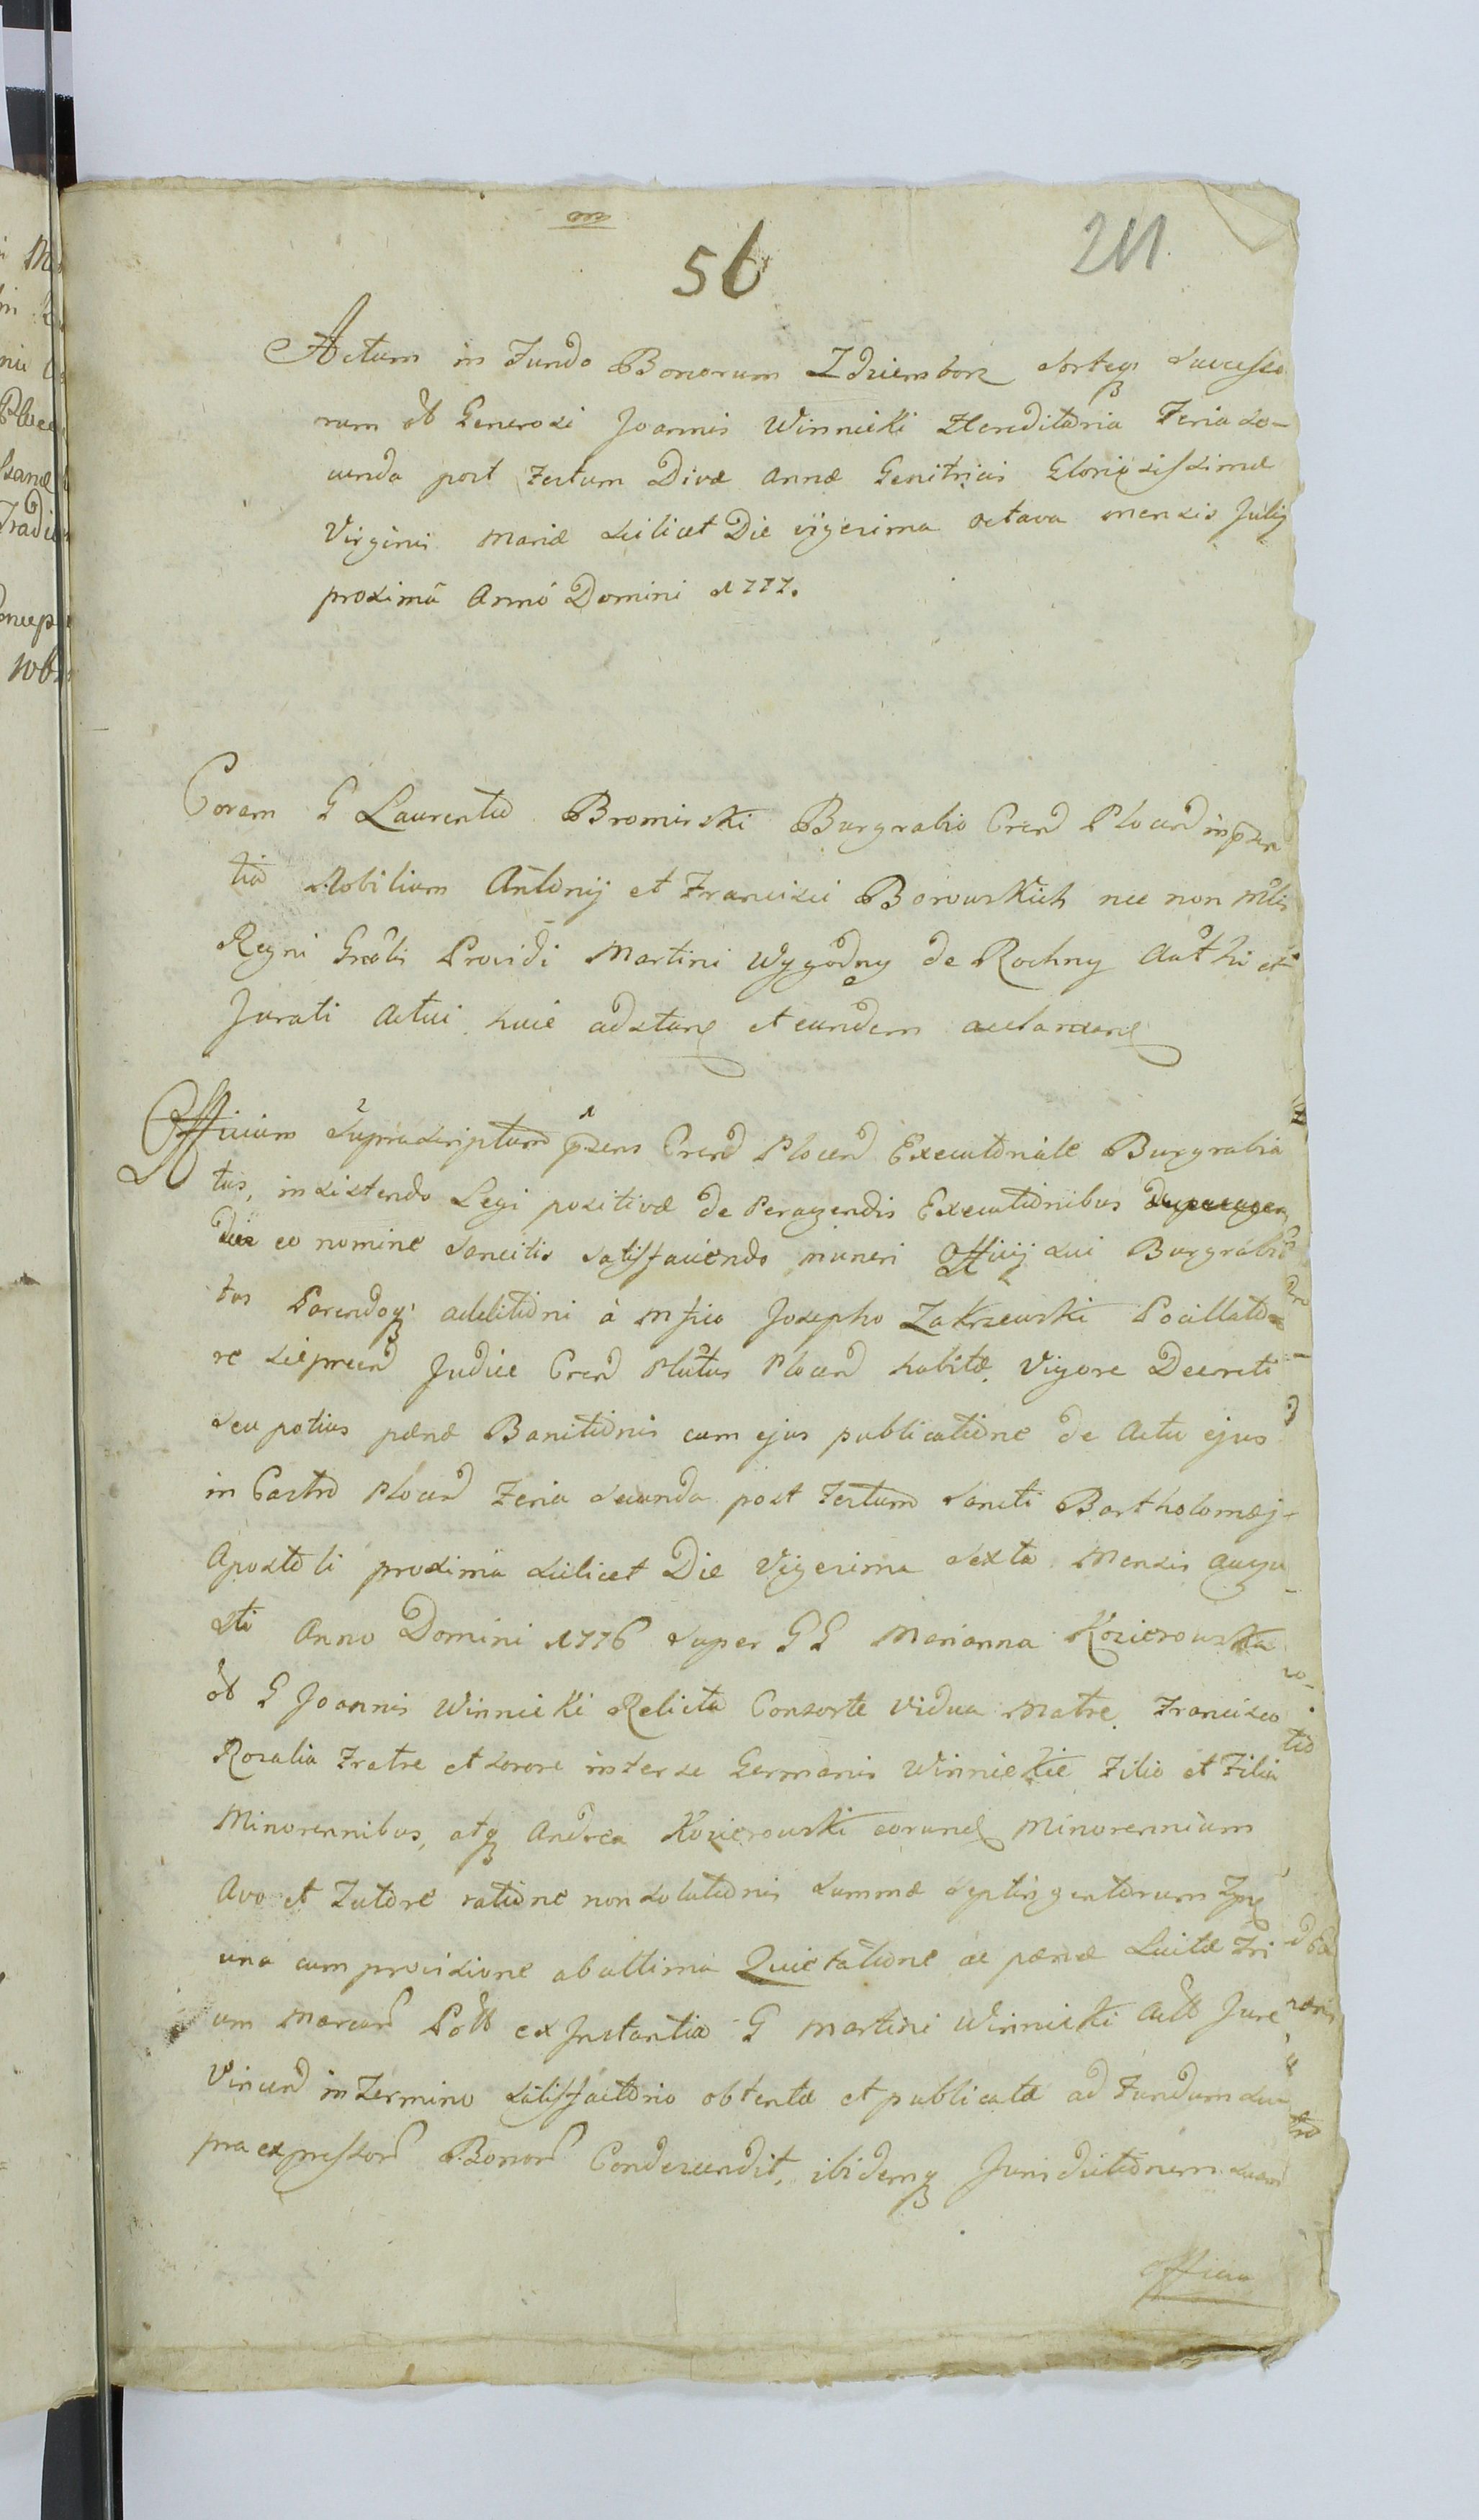 m
56
211.
Actum in Fundo Bonorum Zdziemborz Sorteqȝ Successo
rum ol Generosi Joannis Winnicki Hereditaria Feria Se-
cunda post Festum Divæ Annæ Genitricis Gloriosissimæ
Virginis Mariæ Scilicet Die vigesima octava mensis Julij
proximâ Anno Domini 1777.
Coram G Laurentio Bromirski Burgrabio Cren Plocen in pzen
tia Nobilium Antonij et Francisci Borowskich nec non Mlis
Regni Gnalis Providi Martini Wygodny de Rochny Authi et
Jurati Actui huic adstan et eundem
Officium Suprascriptum pzens Cren Plocen Executoriale Burgrabia
tus, insistendo Legi positivæ de Peragendis Executionibus
eo nomine Sancitis satisfaciendo muneri Officij sui Burgrabia
tus Parendoqȝ addititioni à Mfico Josepho Zakrzewski Pocillato
re Judice Cren Plocen habitæ, Vigore Decreti
Seu potius pænæ Banitionis cum ejus publicatione de Actu ejus
in Castro Plocen Feria Secunda post Festum Sancti Bartholomæj
Apostoli proxima Scilicet Die Vigesima Sexta Mensis Augu-
sti Anno Domini 1776 Super GG Marianna Kosicrowska
ol G Joannis Winnicki Relicta Consorte vidua Matre, Francisco
Rosalia Fratre et Sorore inter se Germanis Winnickie Filio et Filia
Minorennibus, atqȝ Andrea Kozicrowski eorund Minorennium
Avo et Tutore ratione non Solutionis Summæ Septingentorum
una cum provisione ab ultima Quietatione ac pænæ Luitæ Tri
um Marcar Poll ex Instantia G Martini Winnicki Actt Jure
Vincend in Termino Satisfactorio obtentæ et publicatæ ad Fundum Su-
praexpressor Bonor Condescendit, ibidemqȝ Jurisdictionem suam
Officio